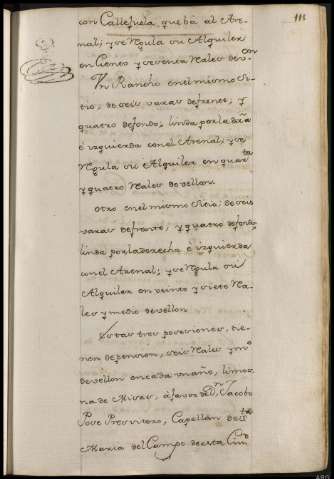 113
con Callejuela, que bá al Are-
nal; y se regula su Alquiler
en Cientos y sesenta Rales de von
Un Rancho en el mismo Si-
tio, de seis varas de frente, y
quatro de fondo, linda por la dra
è izquierda con el Arenal; y se
regula su Alquiler en quarta
y quatro Rales de vellon
Otro en el mismo Sitio, de seis
varas de frente, y quatro de fondo,
linda por la derecha è izquierda
con el Arenal; y se regula su
Alquiler en veinte y siete Ra-
les y medio de vellon
Estas tres posesiones, tie-
nen de pension, seis Rales y mo
de vellon en cada un año, limos-
na de Misas, à favor de Dn Jacobo
Pose Presvitero, Capellan de Sta
Maria del Campo de esta Ciud